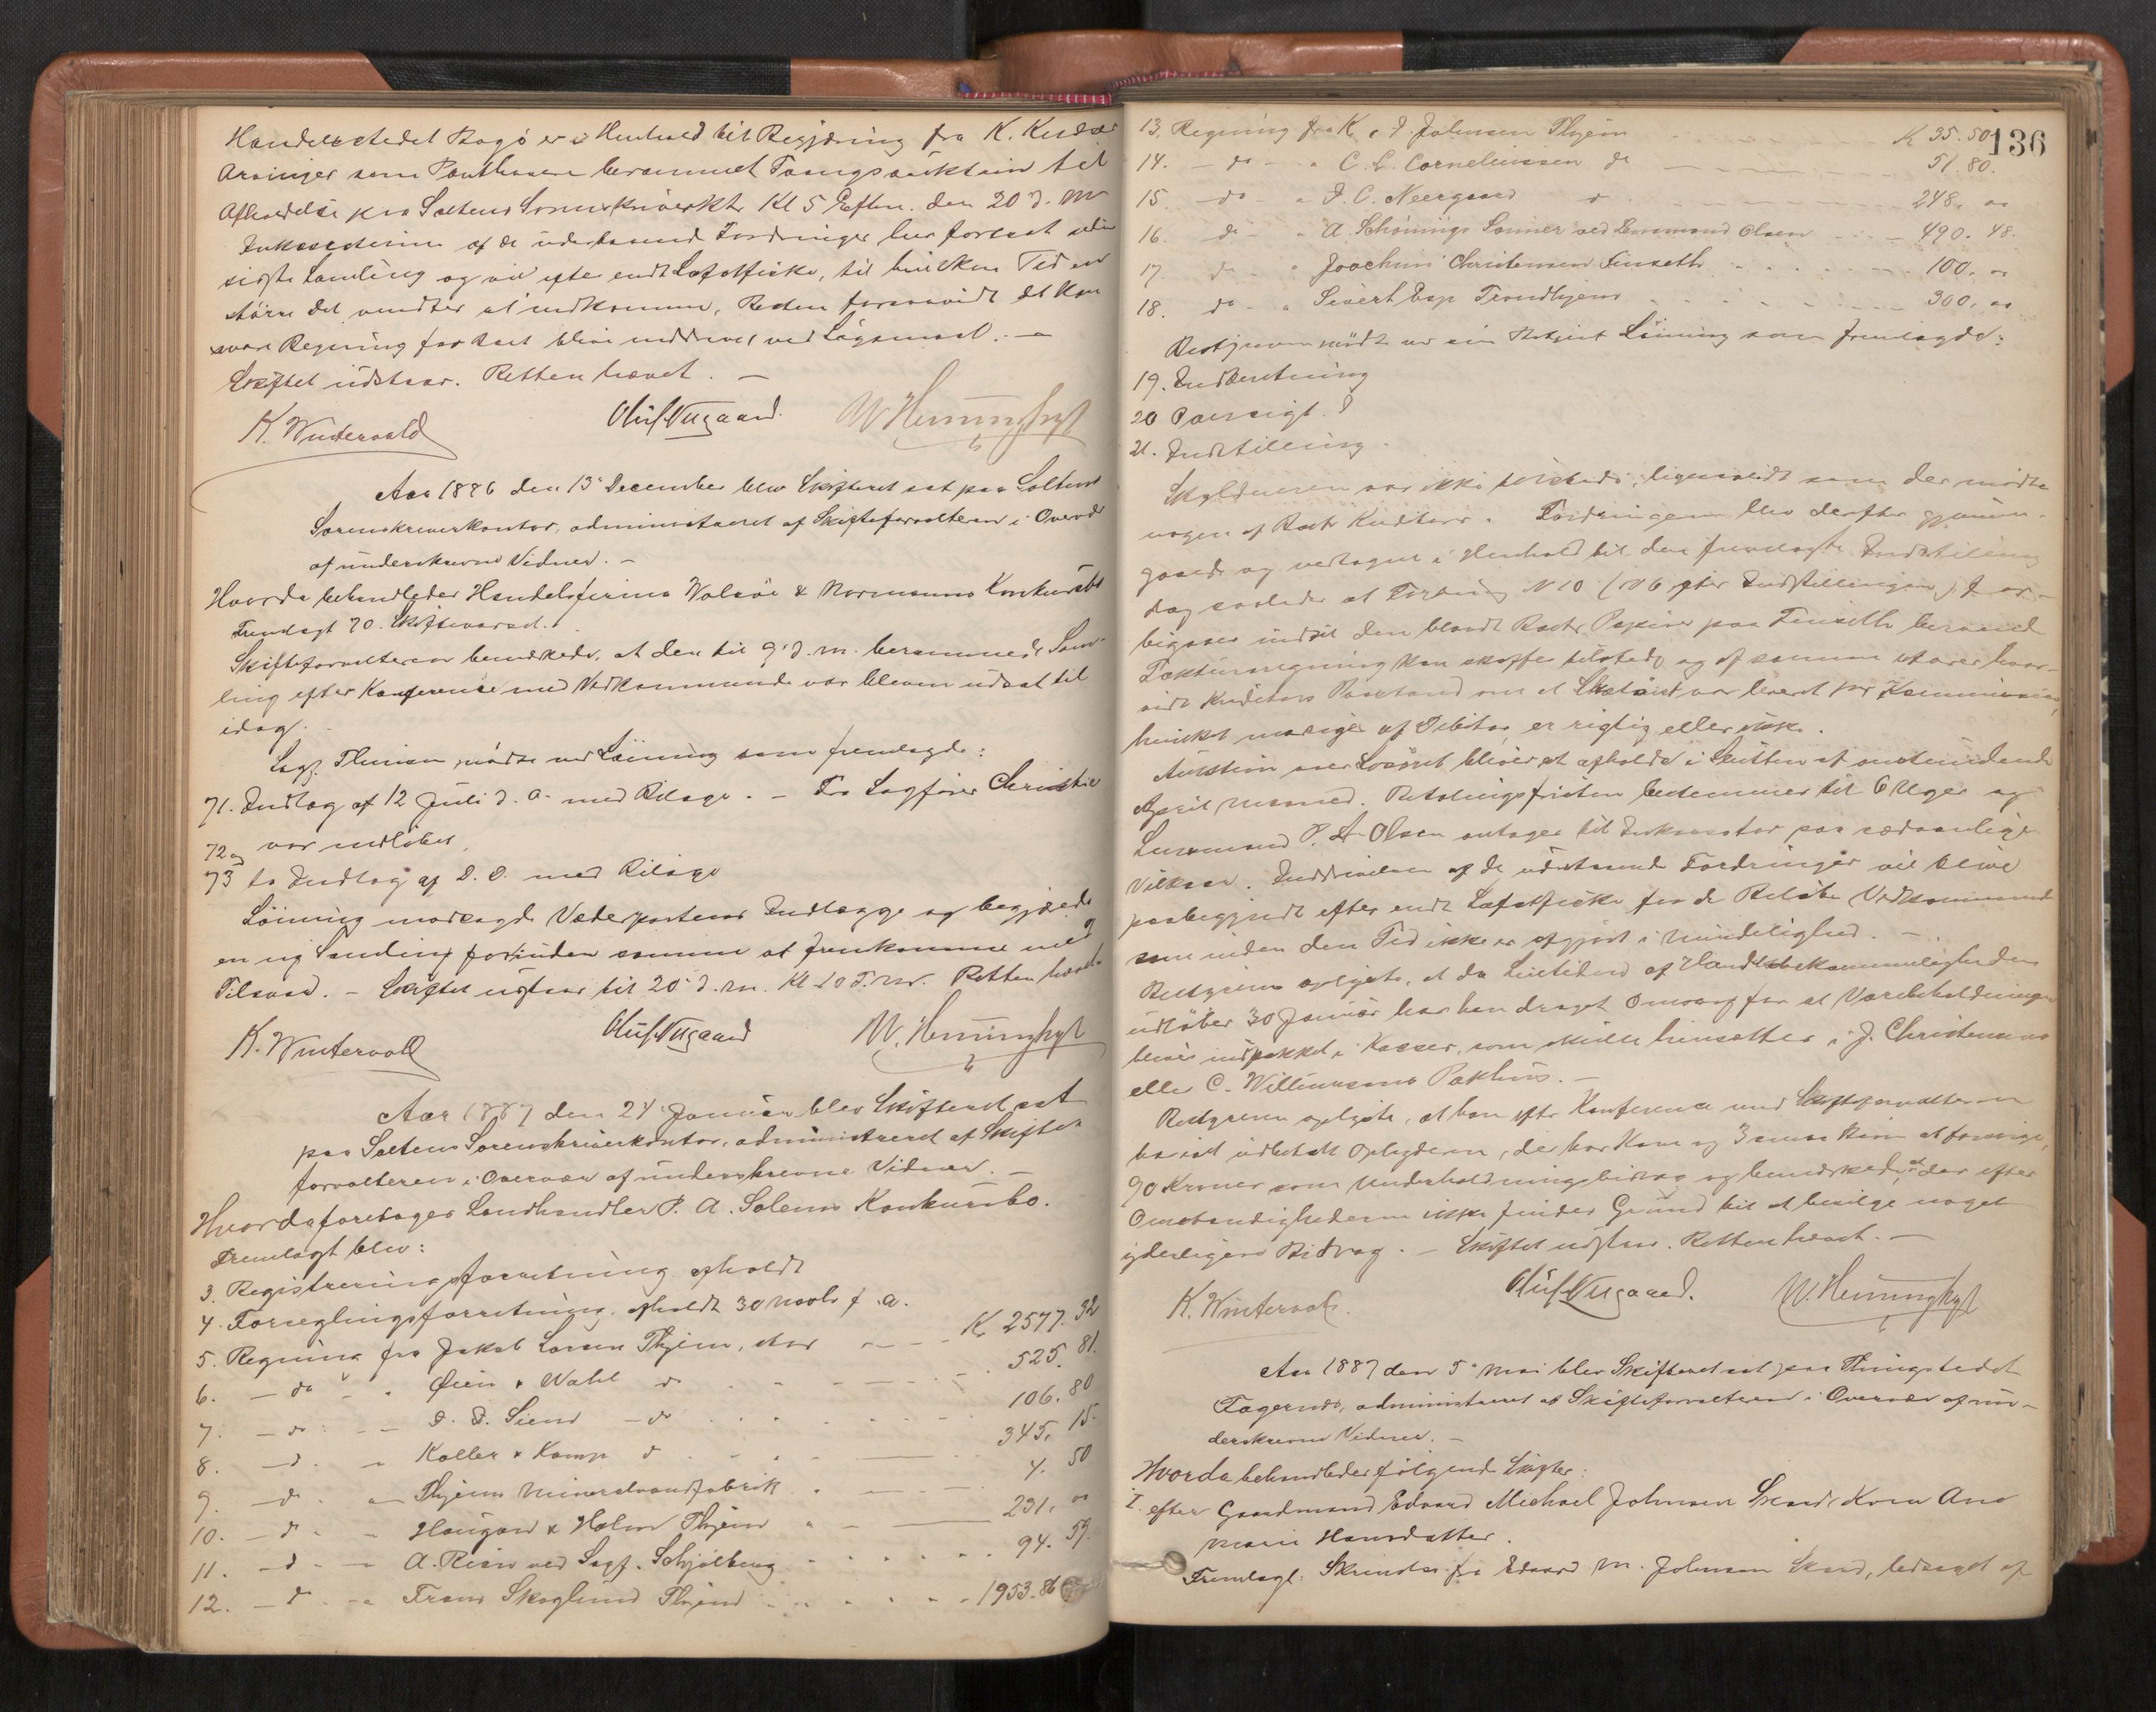 Handelsstedet Bogø er i Henhold til Begjæring fra K. Knudsen
Arvinger som Panthavere berammet Tvangsauktion til
Afholdelse paa Saltens Sorenskriverktr Kl 5 Eftm. den 20 d. M
Inkassationen af de udestaaende Fordringer har fortsat siden
sidste Samling og vil efter endt Lofotfiske, til hvilken Tid en
større Del ventes at indkomme, Resten forsaavidt det kan
svare Regning for Boet blive inddrevet ved Lagsmaal. -
Skiftet udstaar. Retten hævet. -
K. Wintervold Oluf Nygaard W. Henningkyl
Aar 1886 den 13 December blev Skifteret sat paa Saltens
Sorenskriverkontor, administreret af Skifteforvalteren i Overvær
af underskrevne Vidner. -
Hvorda behandledes Handelsfirma Valsøe & Normanns Konkursbo
Fremlagt 70. Skiftevarsel.
Skifteforvalteren bemærkede, at den til 9 d. m. berammede Sam-
ling efter Konference med Vedkommende var bleven udsat til
idag.
Sagf. Thinius mødte ved Löining som fremlagde:
71. Indlæg af 12 Juli d. a. med Bilage. - Fra Sagfører Christie
72 og var indløbet
73 to Indlæg af D. D. med Bilage
Löining modsagde Vederpartens Indlægge og begjærede
en ny Samling forinden samme at fremkomme med
Tilsvar. - Skiftet udstaar til 20 d. m. Kl 10 F. m. Retten hævet
K. Wintervold Oluf Nygaard W. Henningkyl
Aar 1887 den 24 Januar blev Skifteret sat
paa Saltens Sorenskriverkontor, administreret af Skifte-
forvalteren i Overvær af underskrevne Vidner. -
Hvorda foretages Landhandler P. A. Solems Konkursbo.
Fremlagt blev:
3. Registreringsforretning afholdt
4. Forseglingsforretning afholdt 30 Novbr f. a.
5. Regning fra Jakob Larsen Thjem, stor K 2577. 32
6. - do - Øien & Wahl do 525. 81.
7. - do - D. D. Siem - do 106. 80
8. - d. - Koller & Kamp d 345. 15.
9. - d. - Thjems Mineralvandfabrik 4. 50
10. - d - Haugan & Holm Thjem 231. 00
11. - d - A. Risan ved Sagf. Schjølberg 94. 59.
12. - d - Frans Skoglund Thjem 1953. 86
136
13. Regning fra K. & J. Johnsen Thjem K 35. 50
14. - do - C. L. Corneliussen do 51. 80.
15. - do - J. C. Neergaard d 248. 00
16. - do - A. Schönings Sønner ved Lensmand Olsen 490. 48.
17. - do - Joachim Christensen Finseth 100. 00
18. do - Sivert Esp Trondhjem 300. 00
Bestyreren mødte ved sin Löining som fremlagde:
19. Indberetning
20 Oversigt.
21. Indstilling.
Skyldneren var ikke tilstede, ligesaalidt som der mødte
nogen af Boets Kreditorer. Fordringerne blev derefter gjennem-
gaaede og vedtaget i Henhold til den fremlagte Indstilling
dog saaledes at Fordring N 10 (N 6 efter Indstillingen) for-
bigaaes indtil den blandt Boets Papirer paa Finseth beroende
Fakturaregning kan skaffes tilstede og af samme erfares hvor-
vidt Kreditors Paastand om at var leveret pr Kommission,
hvilket modsiges af Debitor, er rigtig eller ikke.
Auktion over Løsøret bliver at afholde i Slutten af anstundende
April Maaned. Betalingsfristen bestemmes til 6 Uger og
Lensmand P. A. Olsen antages til Inkassator paa sædvanlige
Vilkaar. Inddrivelsen af de udestaaende Fordringer vil blive
paabegyndt efter endt Lofotfiske for de Beløbs Vedkommende
som inden den Tid ikke er afgjort i Mindelighed. -
Bestyreren oplyste, at da Leietiden af Handelsbekvemmeligheden
udløber 30 Januar har han draget Omsorg for at Varebeholdningen
bliver indpakket i Kasser, som skulle hensættes i J. Christensens
eller C. Willumsens Pakhus. -
Bestyreren oplyste, at han efter Konference med Skifteforvalteren
havde udbetalt Opbyderen, der har Kone og 3 smaa Børn at forsørge,
90 Kroner som Underholdningsbidrag og bemærkede, at der efter
Omstændighederne ikke findes Grund til at bevilge noget
yderligere Bidrag. - Skiftet udstaar. Retten hævet. -
K. Wintervold. Oluf Nygaard. W. Henningkyl
Aar 1887 den 5 Mai blev Skifteret sat paa Thingstedet
Fagernes, administreret af Skifteforvalteren i Overvær af un-
derskrevne Vidner. -
Hvorda behandledes følgende Skifter:
I. efter Gaardmand Edvard Michael Johnsen Kona Ane
Marie Hansdatter.
Fremlagt: Skrivelse fra Edvard M. Johnsen ledsaget af